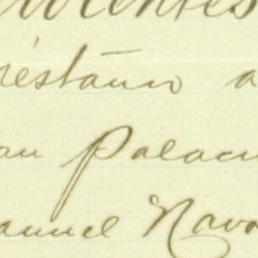 ocentes
réstamo a
an Palaci
anuel Nava